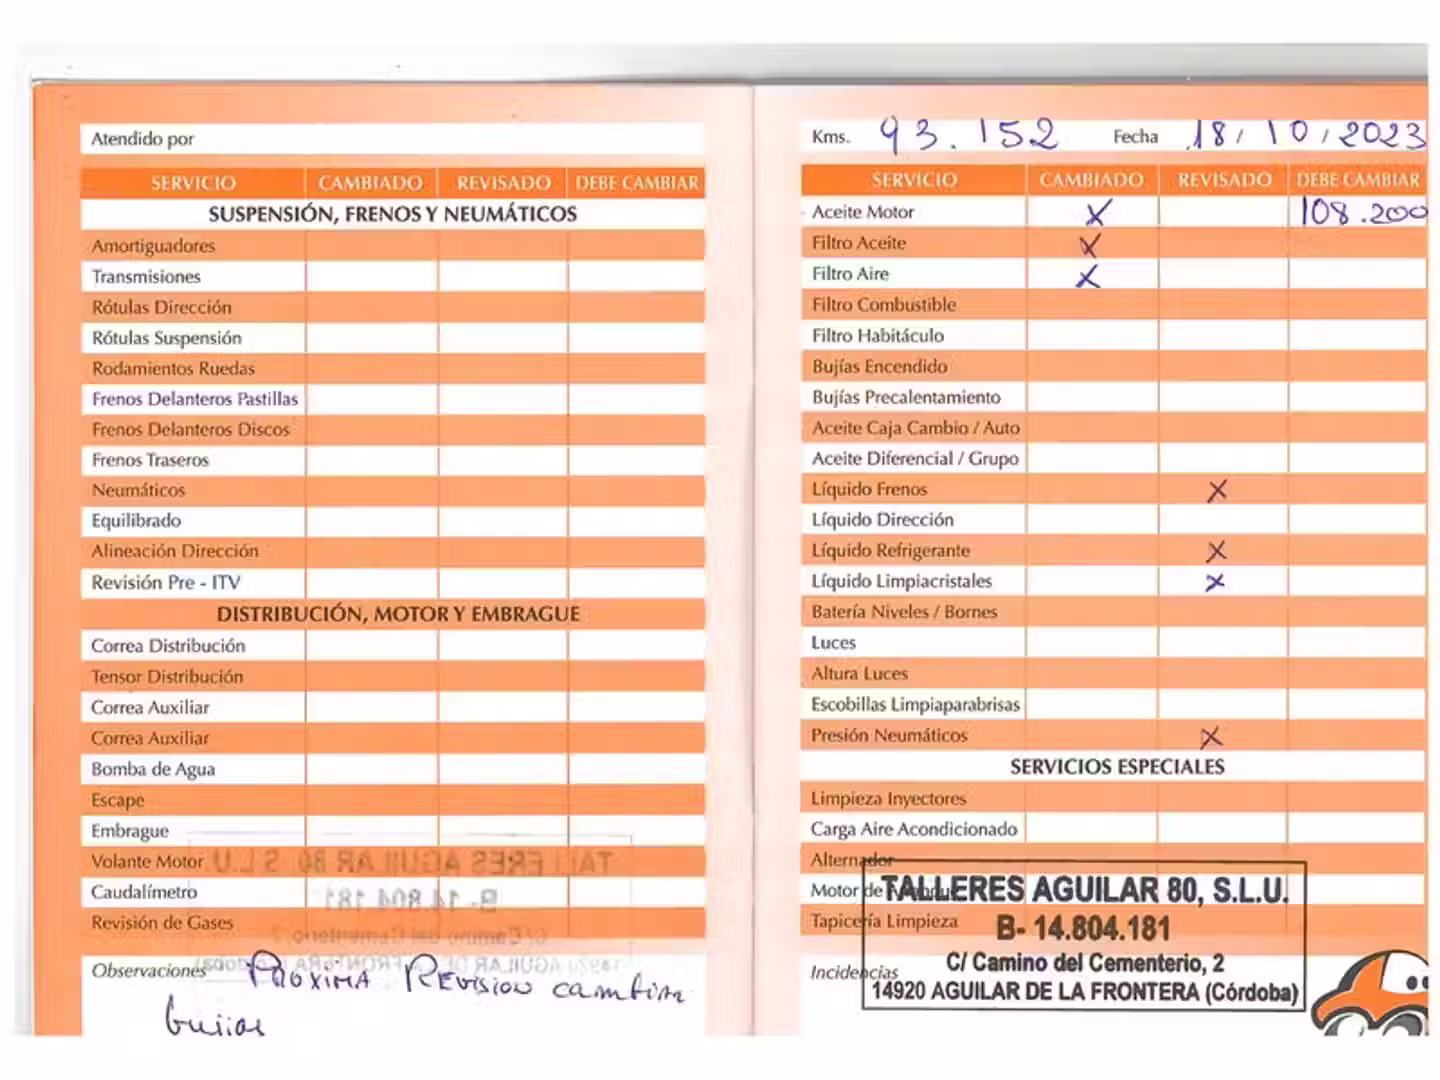 Atendido por
SERVICIO CAMBIADO REVISADO DEBE CAMBIAR
SUSPENSIÓN, FRENOS Y NEUMÁTICOS
Amortiguadores
Transmisiones
Rótulas Dirección
Rótulas Suspensión
Rodamientos Ruedas
Frenos Delanteros Pastillas
Frenos Delanteros Discos
Frenos Traseros
Neumáticos
Equilibrado
Alineación Dirección
Revisión Pre - ITV
DISTRIBUCIÓN, MOTOR Y EMBRAGUE
Correa Distribución
Tensor Distribución
Correa Auxiliar
Correa Auxiliar
Bomba de Agua
Escape
Embrague
Volante Motor
Caudalímetro
Revisión de Gases
Observaciones PROXIMA REVISION cambiar
bujias
Kms. 93.152 Fecha 18/10/2023
SERVICIO CAMBIADO REVISADO DEBE CAMBIAR
Aceite Motor X 108.200
Filtro Aceite X
Filtro Aire X
Filtro Combustible
Filtro Habitáculo
Bujías Encendido
Bujías Precalentamiento
Aceite Caja Cambio / Auto
Aceite Diferencial / Grupo
Líquido Frenos X
Líquido Dirección
Líquido Refrigerante X
Líquido Limpiacristales X
Batería Niveles / Bornes
Luces
Altura Luces
Escobillas Limpiaparabrisas
Presión Neumáticos X
SERVICIOS ESPECIALES
Limpieza Inyectores
Carga Aire Acondicionado
Alternador
Motor de Arranque
Tapicería Limpieza
Incidencias
TALLERES AGUILAR 80, S.L.U.
B- 14.804.181
C/ Camino del Cementerio, 2
14920 AGUILAR DE LA FRONTERA (Córdoba)